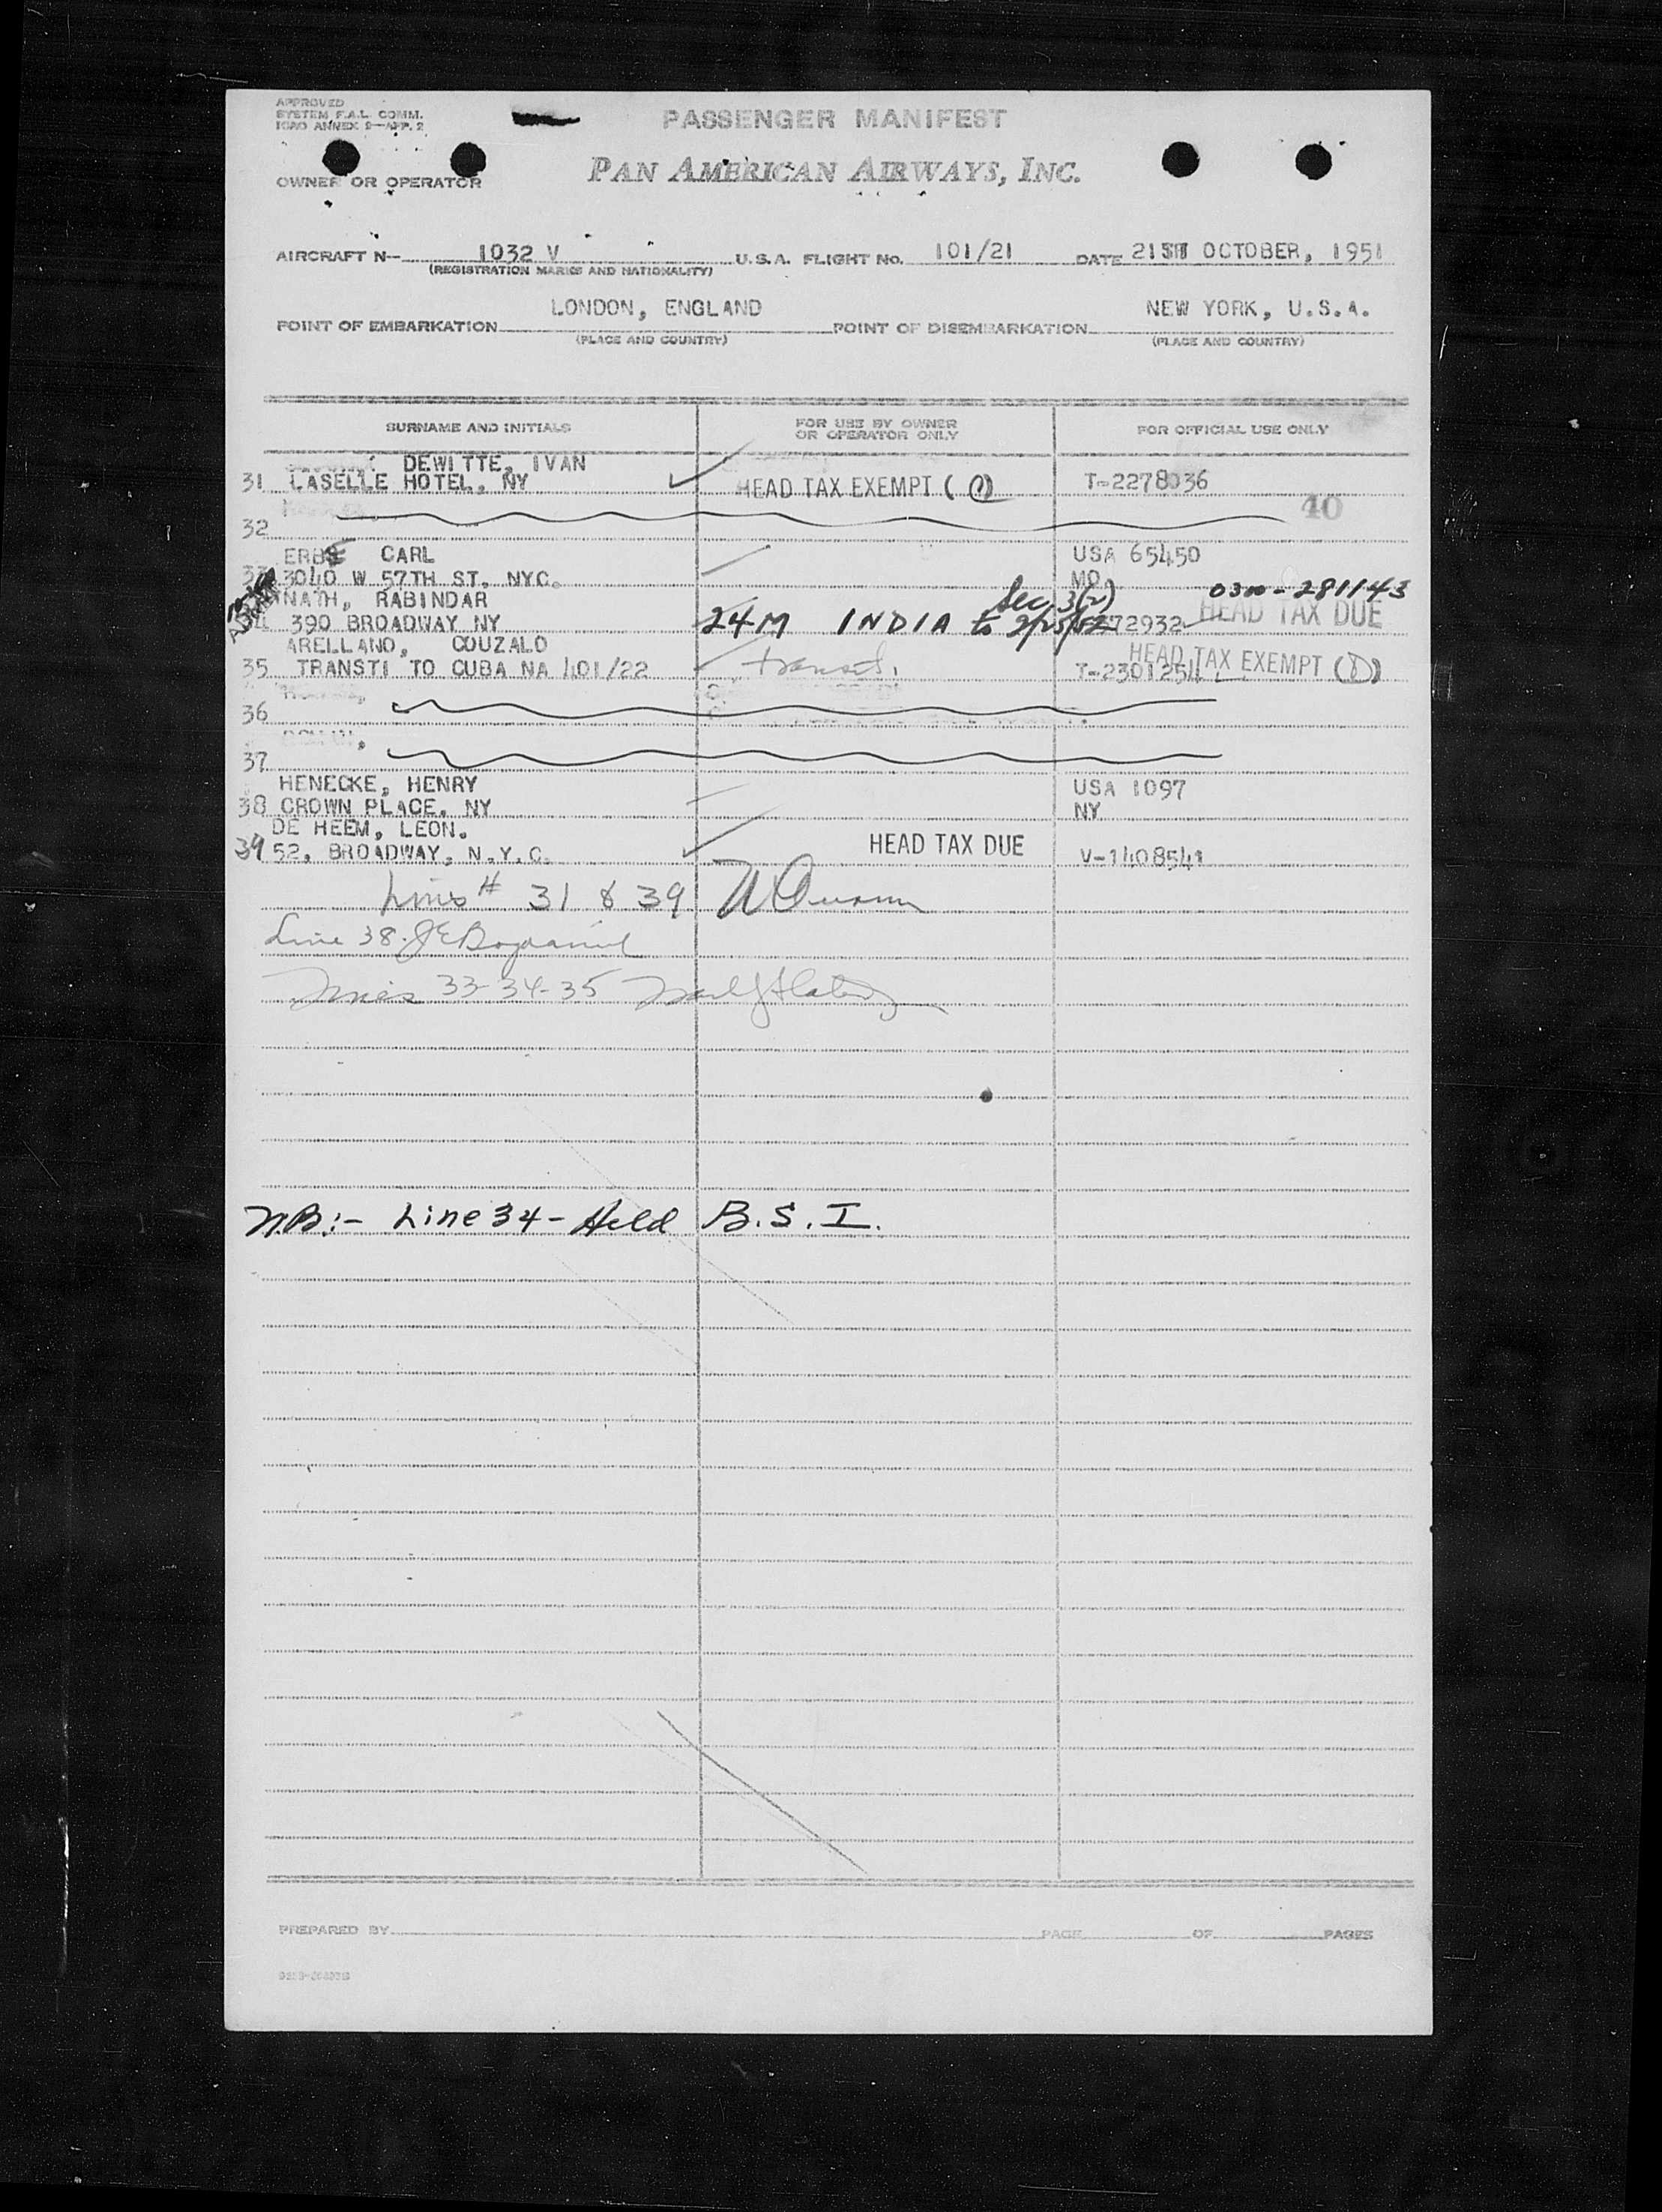 APPROVED
SYSTEM F.A.L. COMM.
ICAO ANNEX 9—APP. 2
PASSENGER MANIFEST
OWNER OR OPERATOR
PAN AMERICAN AIRWAYS, INC.
AIRCRAFT N— 1032 V U.S.A. FLIGHT No. 101/21 DATE 21ST OCTOBER, 1951
(REGISTRATION MARKS AND NATIONALITY)
LONDON, ENGLAND NEW YORK, U.S.A.
POINT OF EMBARKATION POINT OF DISEMBARKATION
(PLACE AND COUNTRY) (PLACE AND COUNTRY)
SURNAME AND INITIALS FOR USE BY OWNER OR OPERATOR ONLY FOR OFFICIAL USE ONLY
DEWITTE, IVAN
31 LASELLE HOTEL, NY HEAD TAX EXEMPT ( ) T-2278036
40
32
ERBE CARL USA 65450
33 3040 W 57TH ST. NYC. MO.
NATH, RABINDAR Sec. 3(2) 0300-281143
34 390 BROADWAY NY 24M INDIA to 2/25/52 72932 HEAD TAX DUE
ARELLANO, COUZALO
35 TRANSTI TO CUBA NA 401/22 transit. T-2301254 HEAD TAX EXEMPT (8)
36
37
HENECKE, HENRY USA 1097
38 CROWN PLACE. NY NY
DE HEEM, LEON.
39 52, BROADWAY, N.Y.C. HEAD TAX DUE V-1408541
Lines # 31 & 39
Line 38.
Lines 33-34-35
N.B:- Line 34 - Held B.S.I.
PREPARED BY PAGE OF PAGES